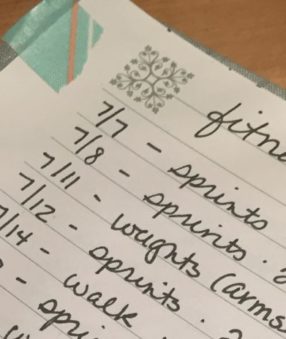 fitne
7/7 - sprints
7/8 - sprints · 2
7/11 - weights (arms
7/12 - sprints · 2
7/14 - walk
- spri